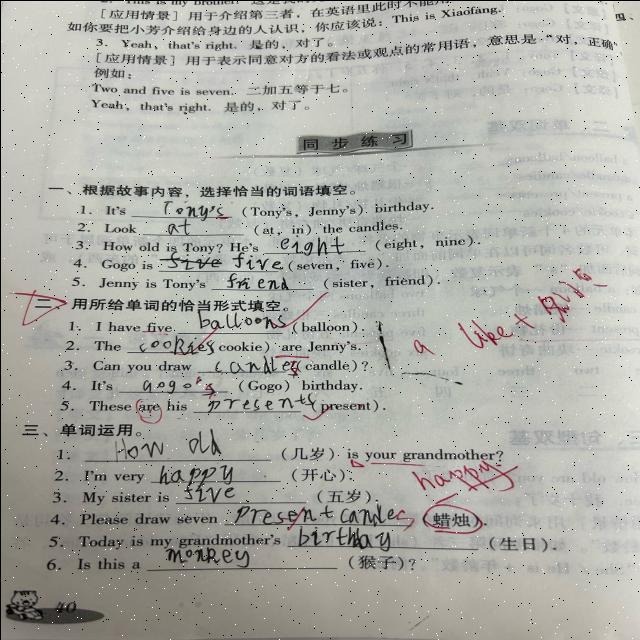 2. This is my brother.
[应用情景] 用于介绍第三者，在英语里此时不能用
如你要把小芳介绍给身边的人认识，你应该说：This is Xiaofang.
3. Yeah, that's right. 是的，对了。
[应用情景] 用于表示同意对方的看法或观点的常用语，意思是“对，正确”
例如：
Two and five is seven. 二加五等于七。
Yeah, that's right. 是的，对了。
同步练习
一、根据故事内容，选择恰当的词语填空。
1. It's Tony's (Tony's, Jenny's) birthday.
2. Look at (at, in) the candles.
3. How old is Tony? He's eight (eight, nine).
4. Gogo is five five (seven, five).
5. Jenny is Tony's friend (sister, friend).
二、用所给单词的恰当形式填空。
1. I have five balloons (balloon).
2. The cookies cookie) are Jenny's.
3. Can you draw candles (candle)?
a like+
4. It's gogo's (Gogo) birthday.
5. These are his presents (present).
三、单词运用。
1. How old (几岁) is your grandmother?
2. I'm very happy (开心).
happy
3. My sister is five (五岁).
4. Please draw seven present candles (蜡烛).
5. Today is my grandmother's birthday (生日).
6. Is this a monkey (猴子)?
40